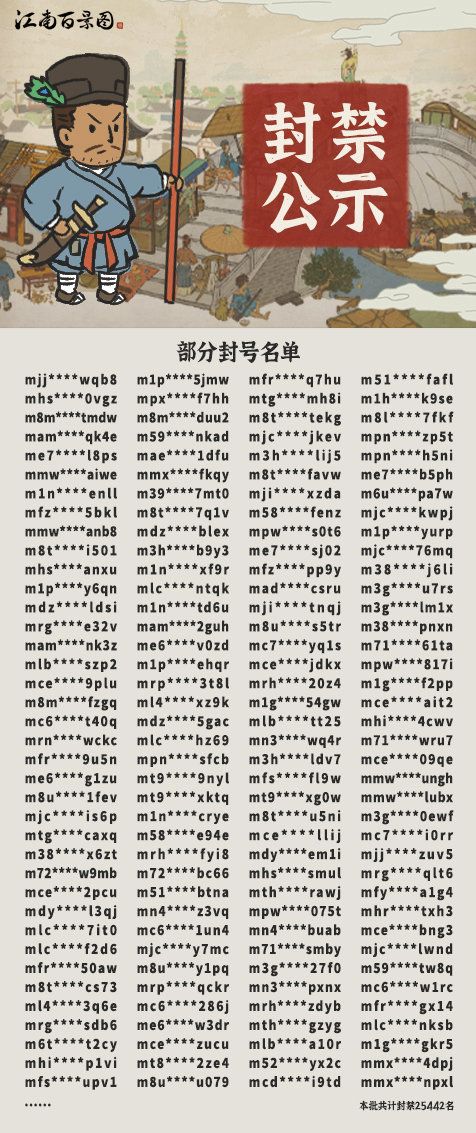 江南百景图
封禁
公示
部分封号名单
mjj****wqb8 m1p****5jmw mfr****q7hu m51****fafl
mhs****0vgz mpx****f7hh mtg****mh8i m1h****k9se
m8m****tmdw m8m****duu2 m8t****tekg m8l****7fkf
mam****qk4e m59****nkad mjc****jkev mpn****zp5t
me7****l8ps mae****1dfu m3h****lij5 mpn****h5ni
mmw****aiwe mmx****fkqy m8t****favw me7****b5ph
m1n****enll m39****7mt0 mji****xzda m6u****pa7w
mfz****5bkl m8t****7q1v m58****fenz mjc****kwpj
mmw****anb8 mdz****blex mpw****s0t6 m1p****yurp
m8t****i501 m3h****b9y3 me7****sj02 mjc****76mq
mhs****anxu m1n****xf9r mfz****pp9y m38****j6li
m1p****y6qn mlc****ntqk mad****csru m3g****u7rs
mdz****ldsi m1n****td6u mji****tnqj m3g****lm1x
mrg****e32v mam****2guh m8u****s5tr m38****pnxn
mam****nk3z me6****v0zd mc7****yq1s m71****61ta
mlb****szp2 m1p****ehqr mce****jdkx mpw****817i
mce****9plu mrp****3t8l mrh****20z4 m1g****f2pp
m8m****fzgq ml4****xz9k m1g****54gw mce****ait2
mc6****t40q mdz****5gac mlb****tt25 mhi****4cwv
mrn****wckc mlc****hz69 mn3****wq4r m71****wru7
mfr****9u5n mpn****sfcb m3h****ldv7 mce****09qe
me6****g1zu mt9****9nyl mfs****fl9w mmw****ungh
m8u****1fev mt9****xktq mt9****xg0w mmw****lubx
mjc****is6p m1n****crye m8t****u5ni m3g****0ewf
mtg****caxq m58****e94e mce****llij mc7****i0rr
m38****x6zt mrh****fyi8 mdy****em1i mjj****zuv5
m72****w9mb m72****bc66 mhs****smul mrg****qlt6
mce****2pcu m51****btna mth****rawj mfy****a1g4
mdy****l3qj mn4****z3vq mpw****075t mhr****txh3
mlc****7it0 mc6****1un4 mn4****buab mce****bng3
mlc****f2d6 mjc****y7mc m71****smby mjc****lwnd
mfr****50aw m8u****y1pq m3g****27f0 m59****tw8q
m8t****cs73 mrp****qckr mn3****pxnx mc6****w1rc
ml4****3q6e mc6****286j mrh****zdyb mfr****gx14
mrg****sdb6 me6****w3dr mth****gzyg mlc****nksb
m6t****t2cy mce****zucu mlb****a10r m1g****gkr5
mhi****p1vi mt8****2ze4 m52****yx2c mmx****4dpj
mfs****upv1 m8u****u079 mcd****i9td mmx****npxl
...... 本批共计封禁25442名